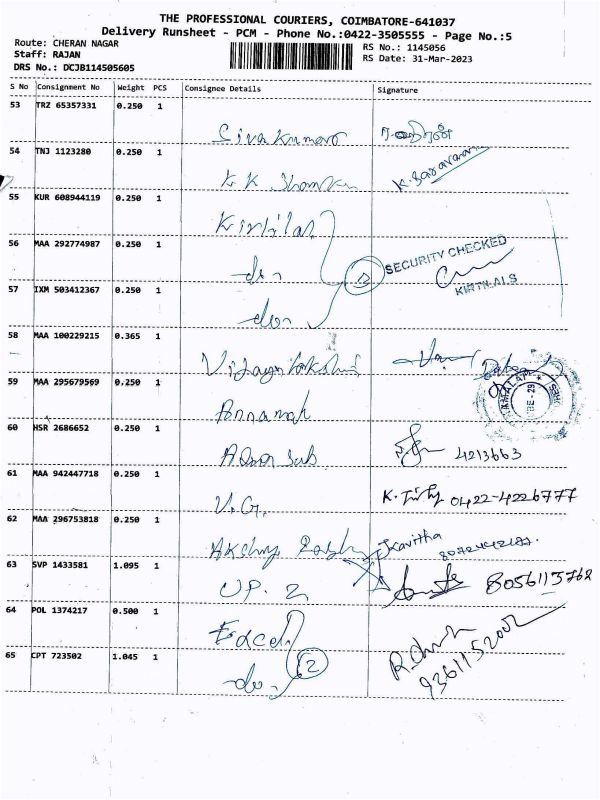 THE PROFESSIONAL COURIERS, COIMBATORE-641037
Delivery Runsheet - PCM - Phone No.:0422-3505555 - Page No.:5
Route: CHERAN NAGAR
Staff: RAJAN
DRS No.: DCJB114505605
RS No.: 1145056
RS Date: 31-Mar-2023
S No Consignment No Weight PCS Consignee Details Signature
53 TRZ 65357331 0.250 1
Sivakumar
54 TNJ 1123280 0.250 1
K.K. K.Saravanan
55 KUR 608944119 0.250 1
Kirtilas
56 MAA 292774987 0.250 1
do 3 SECURITY CHECKED
KIRTILALS
57 IXM 503412367 0.250 1
do
58 MAA 100229215 0.365 1
Vijayalakshmi
59 MAA 295679569 0.250 1
Annamal
60 HSR 2686652 0.250 1
4213663
61 MAA 942447718 0.250 1
V.G. 0422-4226777
62 MAA 296753818 0.250 1
Akshay Kavitha
63 SVP 1433581 1.095 1
UP. 2 8056113762
64 POL 1374217 0.500 1
Excel
65 CPT 723502 1.045 1
do 2 9361152002